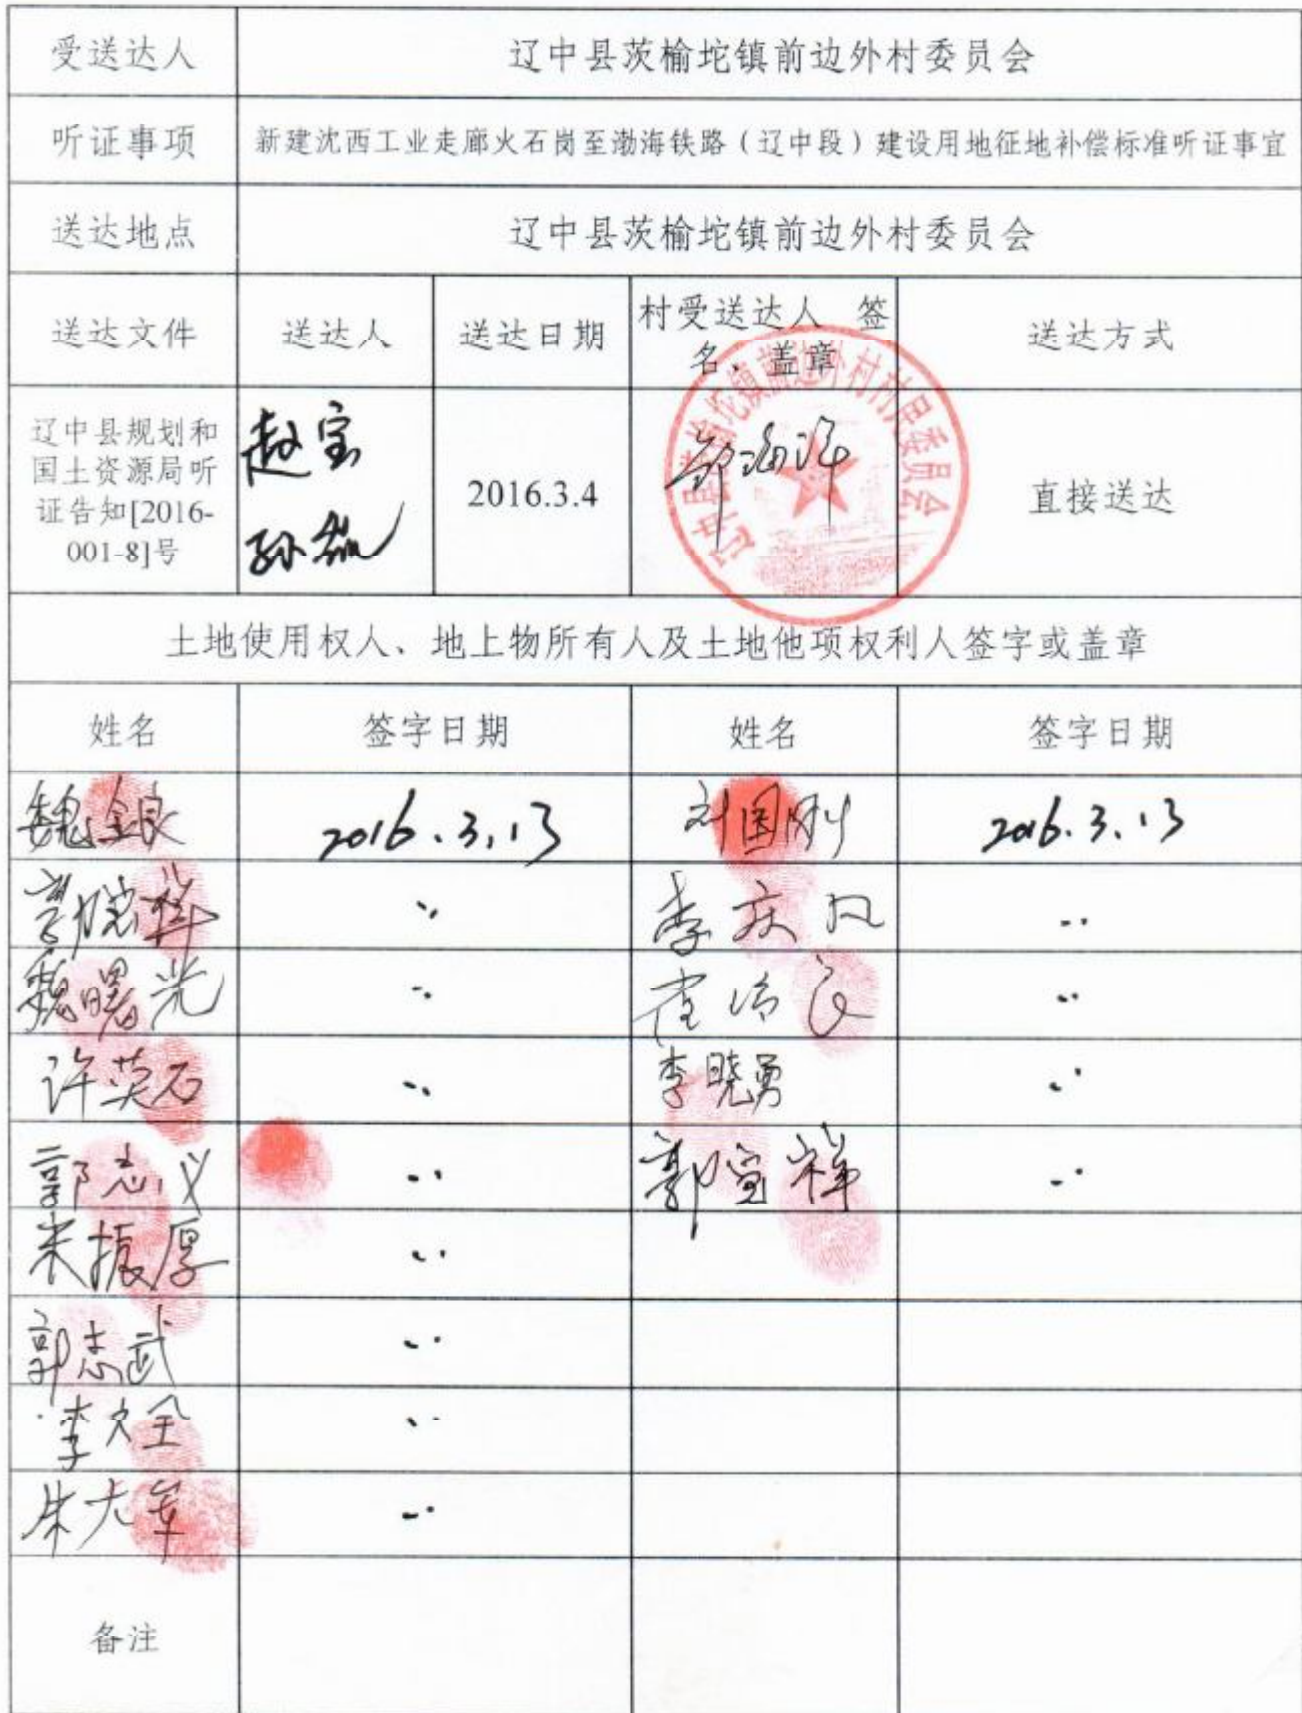 受送达人 辽中县茨榆坨镇前边外村委员会
听证事项 新建沈西工业走廊火石岗至渤海铁路（辽中段）建设用地征地补偿标准听证事宜
送达地点 辽中县茨榆坨镇前边外村委员会
送达文件 送达人 送达日期 村受送达人 签
名、盖章 送达方式
辽中县规划和
国土资源局听
证告知[2016-
001-8]号
赵宝
孙
2016.3.4
辽中县茨榆坨镇前边外村村民委员会
直接送达
土地使用权人、地上物所有人及土地他项权利人签字或盖章
姓名 签字日期 姓名 签字日期
魏金良 2016.3.13 刘国刚 2016.3.13
郭晓辉 〃 李庆 〃
魏曙光 〃 良 〃
许英石 〃 李晓勇 〃
郭志义 〃 郭宝祥 〃
米振厚 〃
郭志武 〃
李文全 〃
朱大军 〃
备注